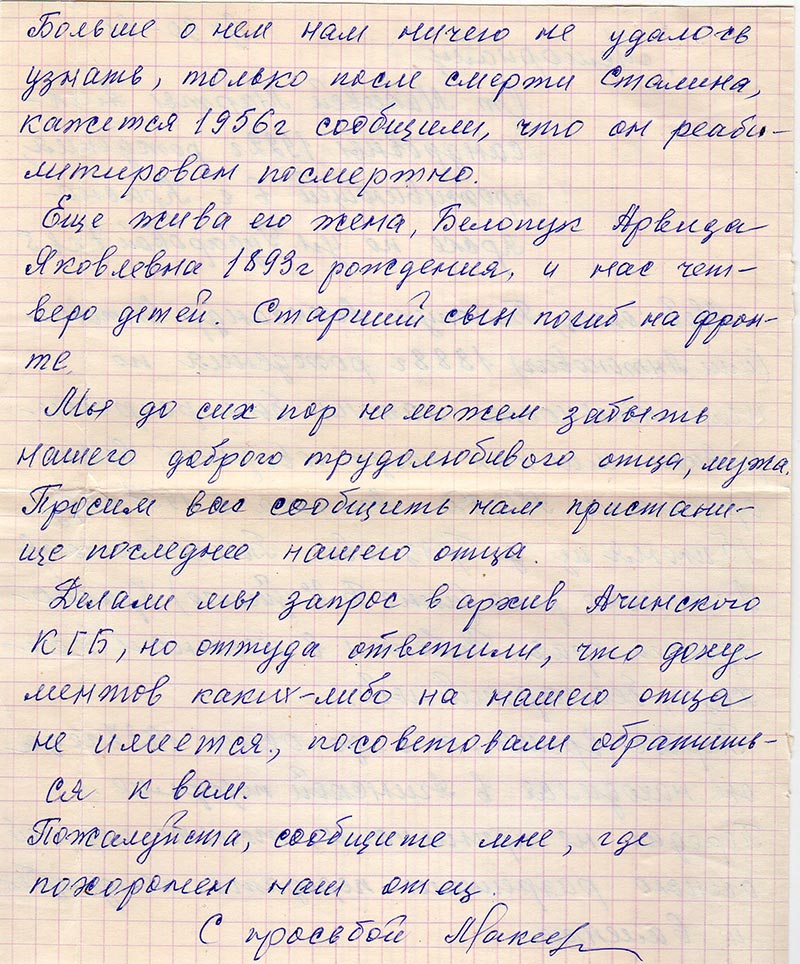 Больше о нем нам ничего не удалось
узнать, только после смерти Сталина,
кажется 1956г сообщили, что он реаби-
литирован посмертно.
Еще жива его жена, Белопух Арвида
Яковлевна 1893г рождения, и нас чет-
веро детей. Старший сын погиб на фрон-
те.
Мы до сих пор не можем забыть
нашего доброго трудолюбивого отца, мужа.
Просим вас сообщить нам пристани-
ще последнее нашего отца.
Делали мы запрос в архив Ачинского
КГБ, но оттуда ответили, что доку-
ментов каких-либо на нашего отца
не имеется., посоветовали обратить-
ся к вам.
Пожалуйста, сообщите мне, где
похоронен наш отец.
С просьбой